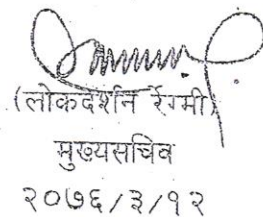 (लोकदर्शन रेग्मी)
मुख्यसचिव
२०७६/३/१२